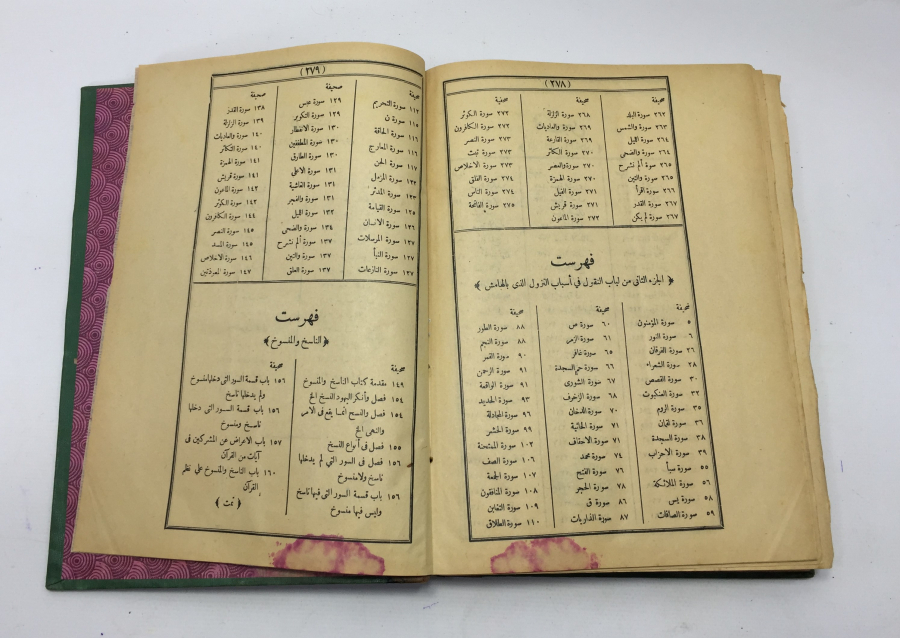 (٢٧٨)
صحيفة
٢٦٢ سورة البلد
٢٦٣ سورة والشمس
٢٦٤ سورة الليل
٢٦٤ سورة والضحى
٢٦٥ سورة ألم نشرح
٢٦٥ سورة والتين
٢٦٦ سورة اقرأ
٢٦٧ سورة القدر
٢٦٧ سورة لم يكن
صحيفة
٢٦٨ سورة الزلزلة
٢٦٩ سورة والعاديات
٢٦٩ سورة القارعة
٢٧٠ سورة التكاثر
٢٧٠ سورة والعصر
٢٧٠ سورة الهمزة
٢٧١ سورة الفيل
٢٧١ سورة قريش
٢٧٢ سورة الماعون
صحيفة
٢٧٢ سورة الكوثر
٢٧٢ سورة الكافرون
٢٧٣ سورة النصر
٢٧٣ سورة تبت
٢٧٣ سورة الاخلاص
٢٧٤ سورة الفلق
٢٧٤ سورة الناس
٢٧٥ سورة الفاتحة
فهرست
﴿ الجزء الثانى من لباب النقول في أسباب النزول الذى بالهامش ﴾
صحيفة
٥ سورة المؤمنون
٦ سورة النور
٢٦ سورة الفرقان
٢٨ سورة الشعراء
٣٠ سورة القصص
٣٢ سورة العنكبوت
٣٥ سورة الروم
٣٦ سورة لقمان
٣٨ سورة السجدة
٣٩ سورة الاحزاب
٥٥ سورة سبأ
٥٦ سورة الملائكة
٥٨ سورة يس
٥٩ سورة الصافات
صحيفة
٦٠ سورة ص
٦١ سورة الزمر
٦٥ سورة غافر
٦٦ سورة حم السجدة
٦٧ سورة الشورى
٦٨ سورة الزخرف
٧٠ سورة الدخان
٧١ سورة الجاثية
٧١ سورة الاحقاف
٧٤ سورة محمد
٧٦ سورة الفتح
٧٨ سورة الحجر
٨٦ سورة ق
٨٧ سورة الذاريات
صحيفة
٨٨ سورة الطور
٨٨ سورة النجم
٩٠ سورة القمر
٩١ سورة الرحمن
٩١ سورة الواقعة
٩٣ سورة الحديد
٩٦ سورة المجادلة
٩٩ سورة الحشر
١٠٣ سورة الممتحنة
١٠٦ سورة الصف
١٠٧ سورة الجمعة
١٠٨ سورة المنافقون
١٠٩ سورة التغابن
١١٠ سورة الطلاق
(٢٧٩)
صحيفة
١١٢ سورة التحريم
١١٥ سورة ن
١١٦ سورة الحاقة
١١٦ سورة المعارج
١١٧ سورة الجن
١٢٢ سورة المزمل
١٢٣ سورة المدثر
١٢٥ سورة القيامة
١٢٦ سورة الانسان
١٢٧ سورة المرسلات
١٢٧ سورة النبأ
١٢٧ سورة النازعات
صحيفة
١٢٩ سورة عبس
١٢٩ سورة التكوير
١٣٠ سورة الانفطار
١٣٠ سورة المطففين
١٣٠ سورة الطارق
١٣١ سورة الاعلى
١٣١ سورة الغاشية
١٣١ سورة والفجر
١٣٢ سورة الليل
١٣٤ سورة والضحى
١٣٧ سورة ألم نشرح
١٣٧ سورة والتين
١٣٧ سورة العلق
صحيفة
١٣٨ سورة القدر
١٣٩ سورة الزلزلة
١٤٠ سورة والعاديات
١٤٠ سورة التكاثر
١٤١ سورة الهمزة
١٤١ سورة قريش
١٤٢ سورة الماعون
١٤٢ سورة الكوثر
١٤٤ سورة الكافرون
١٤٥ سورة النصر
١٤٥ سورة المسد
١٤٦ سورة الاخلاص
١٤٧ سورة المعوذتين
فهرست
﴿ الناسخ والمنسوخ ﴾
صحيفة
١٤٩ مقدمة كتاب الناسخ والمنسوخ
١٥٤ فصل وأنكر اليهود النسخ الخ
١٥٤ فصل والنسخ انما يقع فى الامر
والنهى الخ
١٥٥ فصل فى أنواع النسخ
١٥٦ فصل فى السور التى لم يدخلها
ناسخ ولا منسوخ
١٥٦ باب قسمة السور التى فيها ناسخ
وليس فيها منسوخ
صحيفة
١٥٦ باب قسمة السور التى دخلها منسوخ
ولم يدخلها ناسخ
١٥٦ باب قسمة السور التى دخلها
ناسخ ومنسوخ
١٥٧ باب الاعراض عن المشركين فى
آيات من القرآن
١٦٠ باب الناسخ والمنسوخ على نظم
القرآن
﴿ تمت ﴾